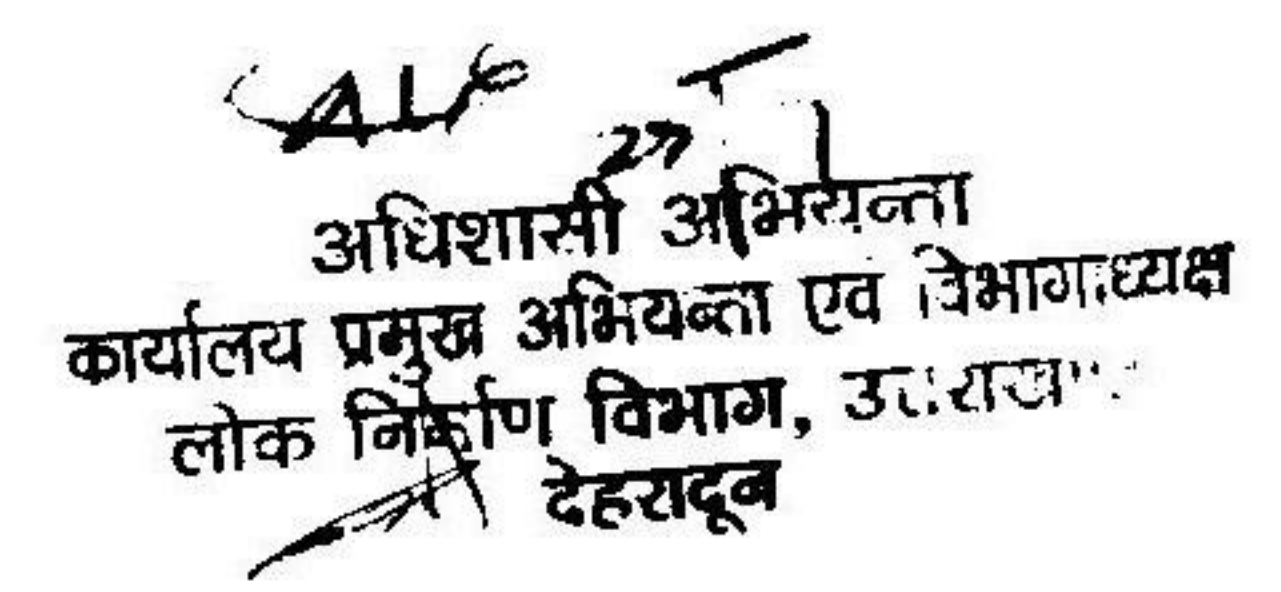 अधिशासी अभियन्ता
कार्यालय प्रमुख अभियन्ता एवं विभागाध्यक्ष
लोक निर्माण विभाग,
देहरादून